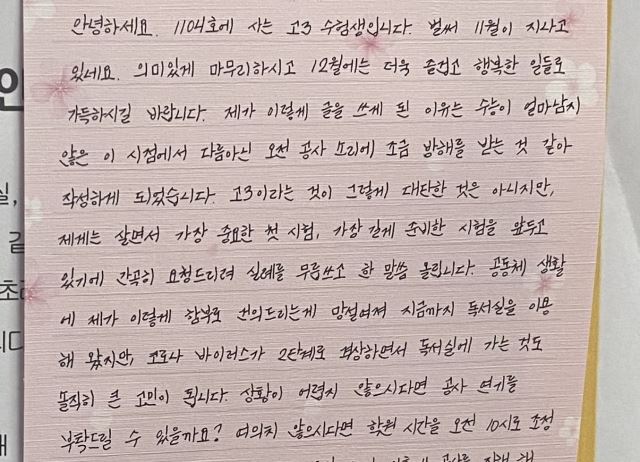 안녕하세요. 1104호에 사는 고3 수험생입니다. 벌써 11월이 지나고
있네요. 의미있게 마무리하시고 12월에는 더욱 즐겁고 행복한 일들로
가득하시길 바랍니다. 제가 이렇게 글을 쓰게 된 이유는 수능이 얼마남지
않은 이 시점에서 다름아닌 오전 공사 소리에 조금 방해를 받는 것 같아
작성하게 되었습니다. 고3이라는 것이 그렇게 대단한 것은 아니지만,
제게는 살면서 가장 중요한 첫 시험, 가장 길게 준비한 시험을 앞두고
있기에 간곡히 요청드리려 실례를 무릅쓰고 한 말씀 올립니다. 공동체 생활
에 제가 이렇게 함부로 건의드리는게 망설여져 지금까지 독서실을 이용
해 왔지만, 코로나 바이러스가 2단계로 격상하면서 독서실에 가는 것도
솔직히 큰 고민이 됩니다. 상황이 어렵지 않으시다면 공사 연기를
부탁드릴 수 있을까요? 여의치 않으시다면 학원 시간을 오전 10시로 조정